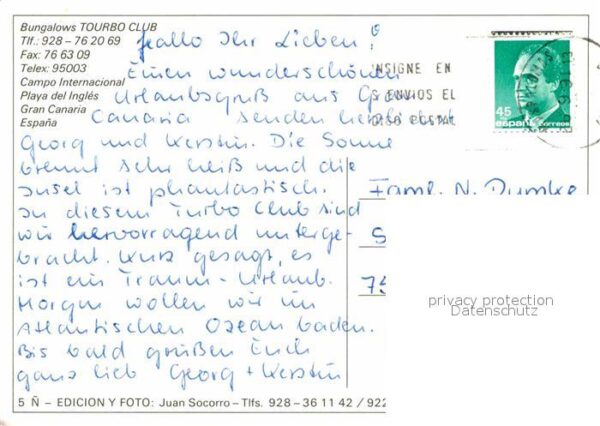 Bungalows TOURBO CLUB
Tlf.: 928 – 76 20 69
Fax: 76 63 09
Telex: 95003
Campo Internacional
Playa del Inglés
Gran Canaria
España
Hallo Ihr Lieben!
Einen wunderschönen
Urlaubsgruß aus Gran
Canaria senden
Georg und Kerstin. Die Sonne
brennt sehr heiß und die
Insel ist phantastisch.
In diesem Turbo Club sind
wir hervorragend unterge-
bracht. Kurz gesagt, es
ist ein Traum-Urlaub.
Morgen wollen wir im
Atlantischen Ozean baden.
Bis bald grüßen Euch
ganz lieb Georg + Kerstin
NSIGNE EN
S ENVIOS EL
DIGO POSTAL
45
españa correos
Faml. N. Dumke
S
75
privacy protection
Datenschutz
5 Ñ – EDICION Y FOTO: Juan Socorro – Tlfs. 928 – 36 11 42 / 922